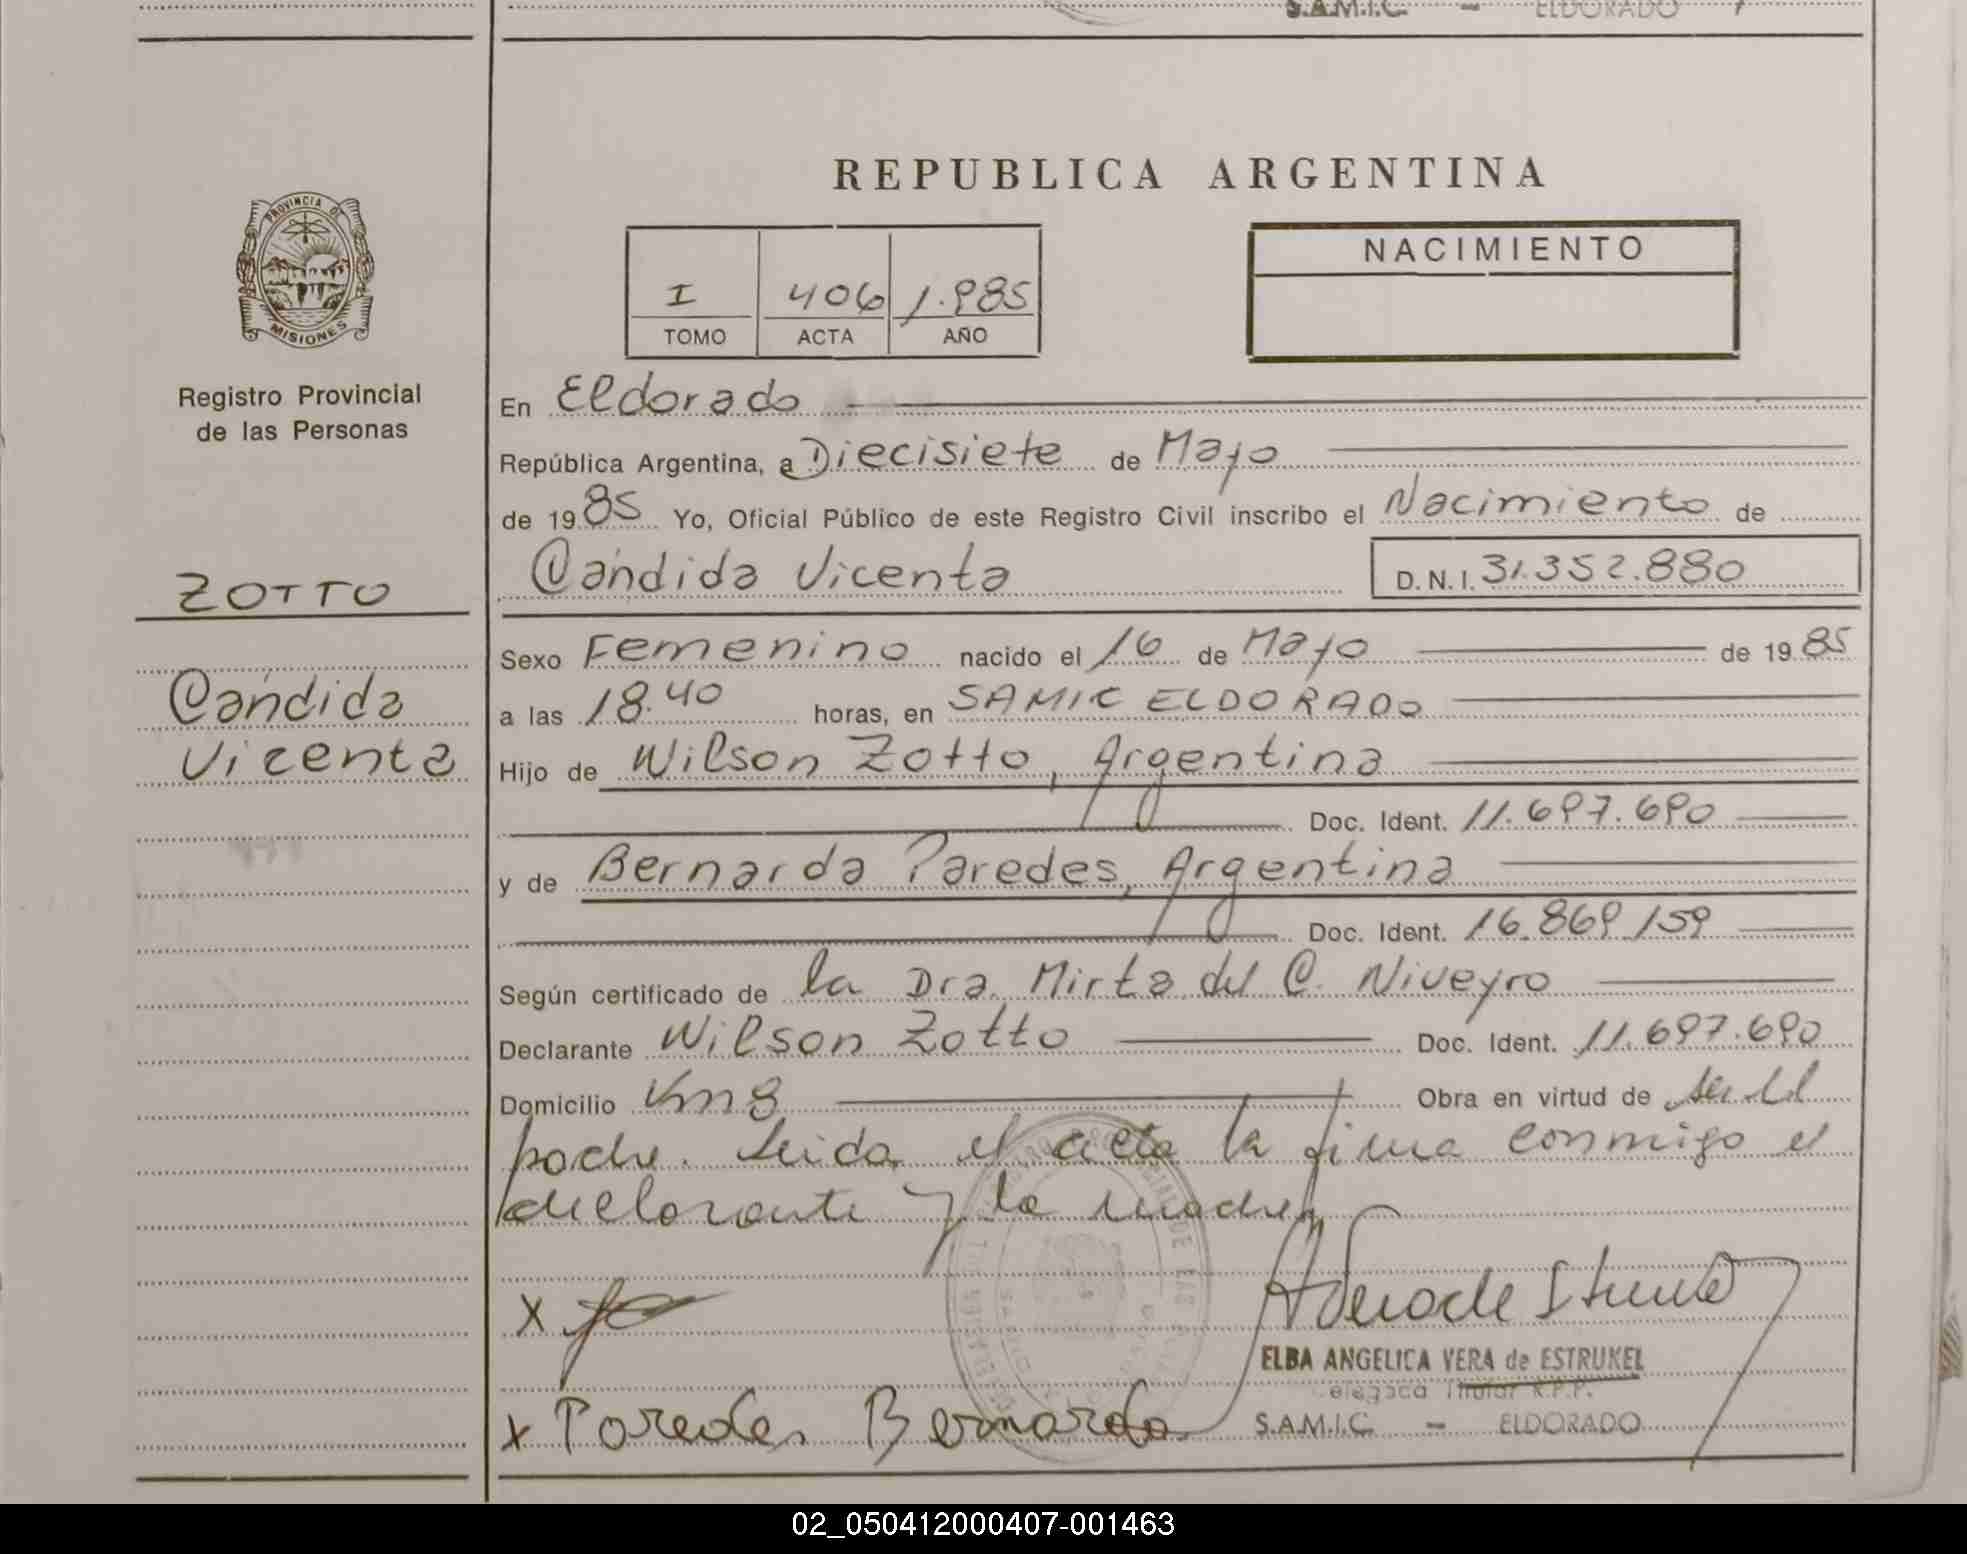 S.A.M.I.C. - ELDORADO
REPUBLICA ARGENTINA
PROVINCIA DE
MISIONES
Registro Provincial
de las Personas
ZOTTO
Cándida
Vicenta
I 406 1.985
TOMO ACTA AÑO
NACIMIENTO
En Eldorado
República Argentina, a Diecisiete de Mayo
de 1985 Yo, Oficial Público de este Registro Civil inscribo el Nacimiento de
Cándida Vicenta D.N.I. 31.352.880
Sexo Femenino nacido el 16 de Mayo de 1985
a las 18.40 horas, en SAMIC ELDORADO
Hijo de Wilson Zotto, Argentina
Doc. Ident. 11.697.690
y de Bernarda Paredes, Argentina
Doc. Ident. 16.869.159
Según certificado de la Dra. Mirta del C. Niveyro
Declarante Wilson Zotto Doc. Ident. 11.697.690
Domicilio Km 8 Obra en virtud de ser el
padre. Leida el acta la firma conmigo el
declarante y la madre
X
ELBA ANGELICA VERA de ESTRUKEL
Delegada Titular R.P.P.
x Paredes Bernarda S.A.M.I.C. - ELDORADO
02_050412000407-001463